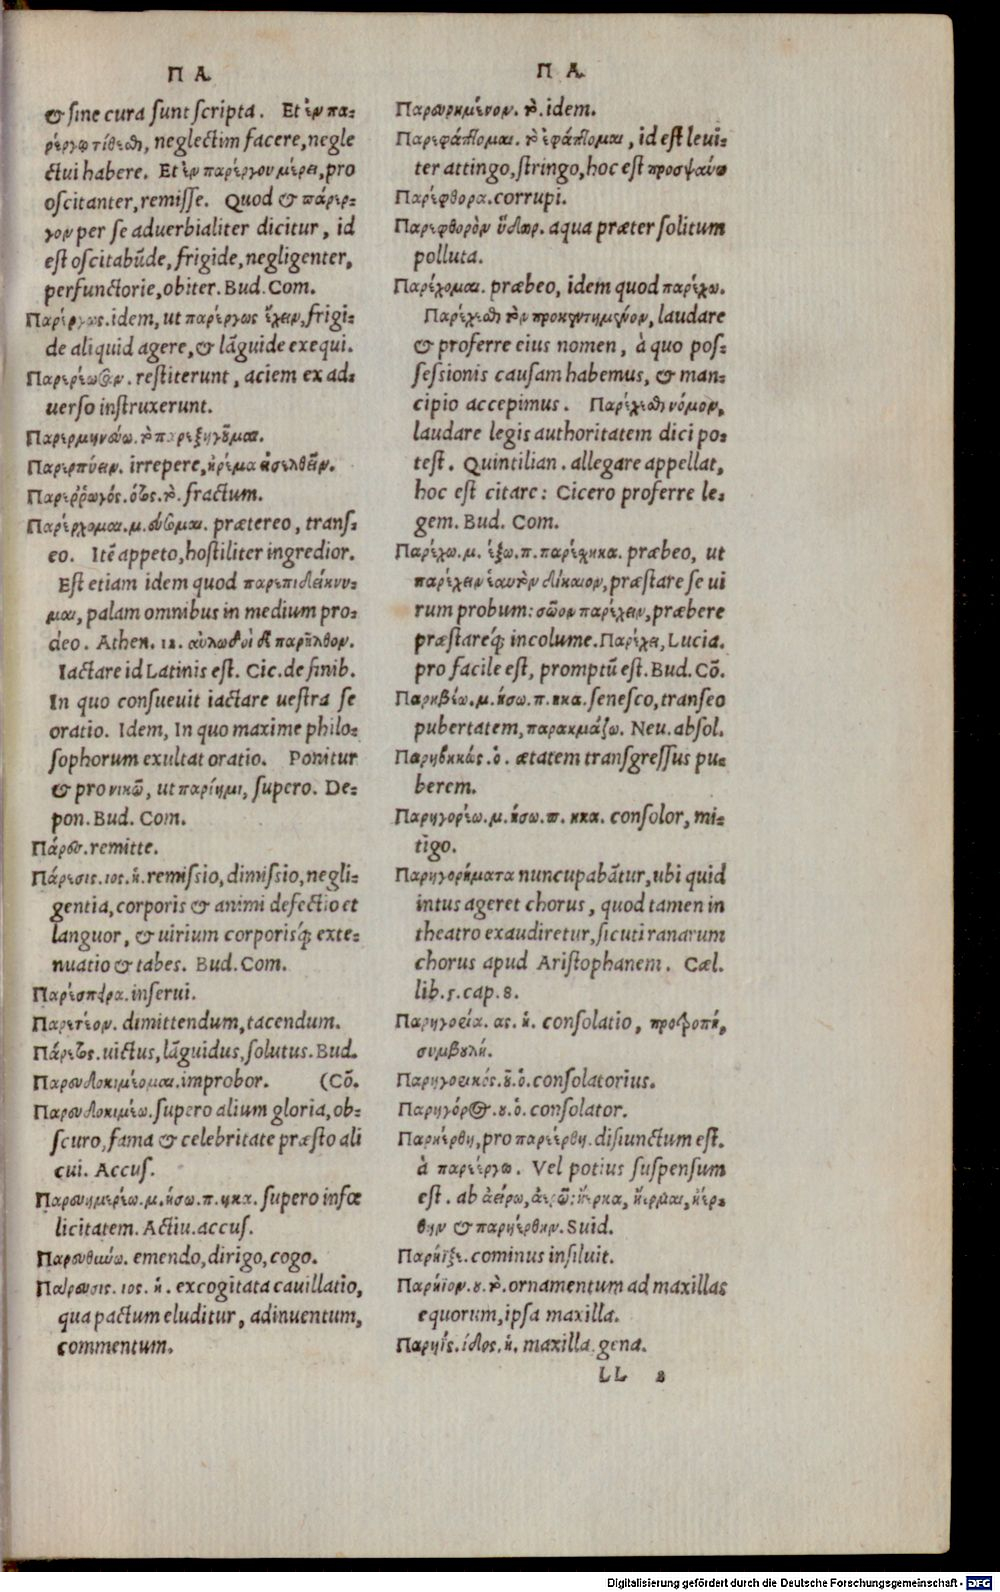 Π Α
& sine cura sunt scripta. Et ἐν πα-
ρέργῳ τίθεσθαι, neglectim facere, negle
ctui habere. Et ἐν παρέργου μέρει, pro
oscitanter, remisse. Quod & πάρερ-
γον per se aduerbialiter dicitur, id
est oscitabūde, frigide, negligenter,
perfunctorie, obiter. Bud. Com.
Παρέργως. idem, ut παρέργως ἔχειν, frigi-
de aliquid agere, & lāguide exequi.
restiterunt, aciem ex ad-
uerso instruxerunt.
Παρερμηνεύω. τὸ παρεξηγοῦμαι.
Παρερπύειν. irrepere, ἠρέμα εἰσελθεῖν.
Παρερρωγός. ότος. τὸ. fractum.
Παρέρχομαι. μ. εύσομαι. prætereo, trans-
eo. Itē appeto, hostiliter ingredior.
Est etiam idem quod παρεπιδείκνυ-
μαι, palam omnibus in medium pro-
deo. Athen. 12. αὐλωδοὶ δὲ παρῆλθον.
Iactare id Latinis est. Cic. de finib.
In quo consueuit iactare uestra se
oratio. Idem, In quo maxime philo-
sophorum exultat oratio. Ponitur
& pro νικῶ, ut παρίημι, supero. De-
pon. Bud. Com.
Πάρεσο. remitte.
Πάρεσις. ιος. ἡ. remissio, dimissio, negli-
gentia, corporis & animi defectio et
languor, & uirium corporisq́; exte-
nuatio & tabes. Bud. Com.
Παρέσπειρα. inserui.
Παρετέον. dimittendum, tacendum.
Πάρετος. uictus, lāguidus, solutus. Bud.
Παρευδοκιμέομαι. improbor. (Cō.
Παρευδοκιμέω. supero alium gloria, ob-
scuro, fama & celebritate præsto ali
cui. Accus.
Παρευημερέω. μ. ήσω. π. ηκα. supero infœ
licitatem. Actiu. accus.
Παρευθύνω. emendo, dirigo, cogo.
Παρεύρεσις. ιος. ἡ. excogitata cauillatio,
qua pactum eluditur, adinuentum,
commentum.
Π Α
Παρευρημένον. τὸ. idem.
Παρεφάπτομαι. τὸ ἐφάπτομαι, id est leui-
ter attingo, stringo, hoc est προσψαύω
Παρέφθορα. corrupi.
Παρεφθορὸν ὕδωρ. aqua præter solitum
polluta.
Παρέχομαι. præbeo, idem quod παρέχω.
Παρέχεσθαι τὸν προκεντημένον, laudare
& proferre eius nomen, à quo pos-
sessionis causam habemus, & man-
cipio accepimus. Παρέχεσθαι νόμον,
laudare legis authoritatem dici po-
test. Quintilian. allegare appellat,
hoc est citare: Cicero proferre le-
gem. Bud. Com.
Παρέχω. μ. έξω. π. παρέσχηκα. præbeo, ut
παρέχειν ἑαυτὸν δίκαιον, præstare se ui
rum probum: σῶον παρέχειν, præbere
præstareq́; incolume. Παρέχει, Lucia.
pro facile est, promptū est. Bud. Cō.
Παρηβέω. μ. ήσω. π. ηκα. senesco, transeo
pubertatem, παρακμάζω. Neu. absol.
Παρηβηκώς. ὁ. ætatem transgressus pu-
berem.
Παρηγορέω. μ. ήσω. π. ηκα. consolor, mi-
tigo.
Παρηγορήματα nuncupabātur, ubi quid
intus ageret chorus, quod tamen in
theatro exaudiretur, sicuti ranarum
chorus apud Aristophanem. Cæl.
lib. 5. cap. 8.
Παρηγορία. ας. ἡ. consolatio, προτροπή,
συμβουλή.
Παρηγορικός. οῦ. ὁ. consolatorius.
Παρηγόρος. ου. ὁ. consolator.
Παρηέρθη, pro παρεέρθη. disiunctum est.
à παρεέργω. Vel potius suspensum
est. ab ἀείρω, ἀερῶ: ἤερκα, ἤερμαι, ἤέρ-
θην & παρηέρθην. Suid.
Παρήϊξε. cominus insiluit.
Παρήϊον. ου. τὸ. ornamentum ad maxillas
equorum, ipsa maxilla.
Παρηΐς. ίδος. ἡ. maxilla. gena.
LL 2
Digitalisierung gefördert durch die Deutsche Forschungsgemeinschaft - DFG